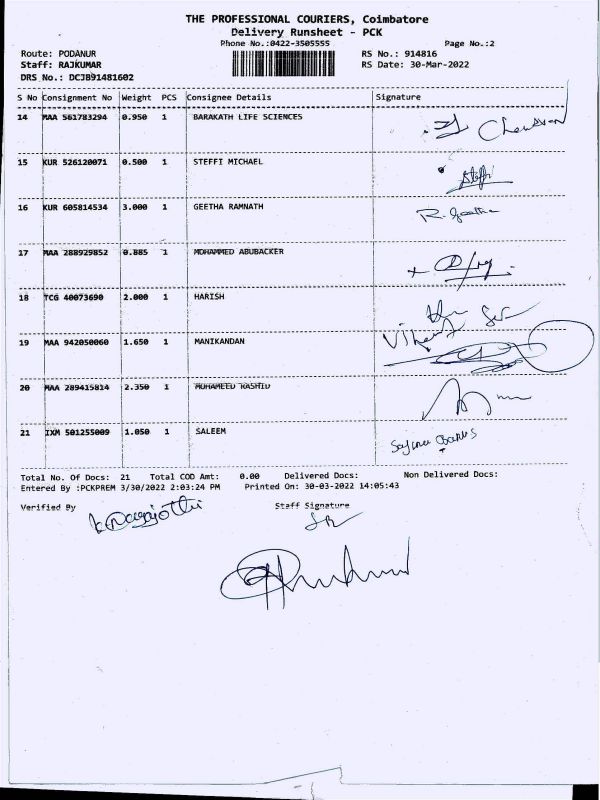 THE PROFESSIONAL COURIERS, Coimbatore
Delivery Runsheet - PCK
Phone No.:0422-3505555 Page No.:2
Route: PODANUR RS No.: 914816
Staff: RAJKUMAR RS Date: 30-Mar-2022
DRS No.: DCJB91481602
S No Consignment No Weight PCS Consignee Details Signature
14 MAA 561783294 0.950 1 BARAKATH LIFE SCIENCES
15 KUR 526120071 0.500 1 STEFFI MICHAEL Steffi
16 KUR 605814534 3.000 1 GEETHA RAMNATH R. Geetha
17 MAA 288929852 0.885 1 MOHAMMED ABUBACKER
18 TCG 40073690 2.000 1 HARISH
19 MAA 942050060 1.650 1 MANIKANDAN
20 MAA 289415814 2.350 1 MOHAMEED RASHID
21 IXM 501255009 1.050 1 SALEEM
Total No. Of Docs: 21 Total COD Amt: 0.00 Delivered Docs: Non Delivered Docs:
Entered By :PCKPREM 3/30/2022 2:03:24 PM Printed On: 30-03-2022 14:05:43
Verified By Staff Signature